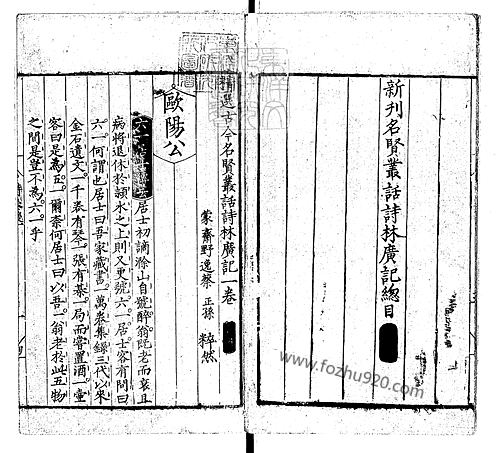 新刊名賢叢話詩林廣記總目
精選古今名賢叢話詩林廣記一卷
蒙齋野逸蔡 正孫 粹然
歐陽公
六一居士初謫滁山自號醉翁既老而衰且
病將退休於潁水之上則又更號六一居士客有問曰
六一何謂也居士曰吾家藏書一萬卷集錄三代以來
金石遺文一千卷有琴一張有棊一局而常置酒一壺
客曰是為五一爾奈何居士曰以吾一翁老於此五物
之間是豈不為六一乎
www.fozhu920.com